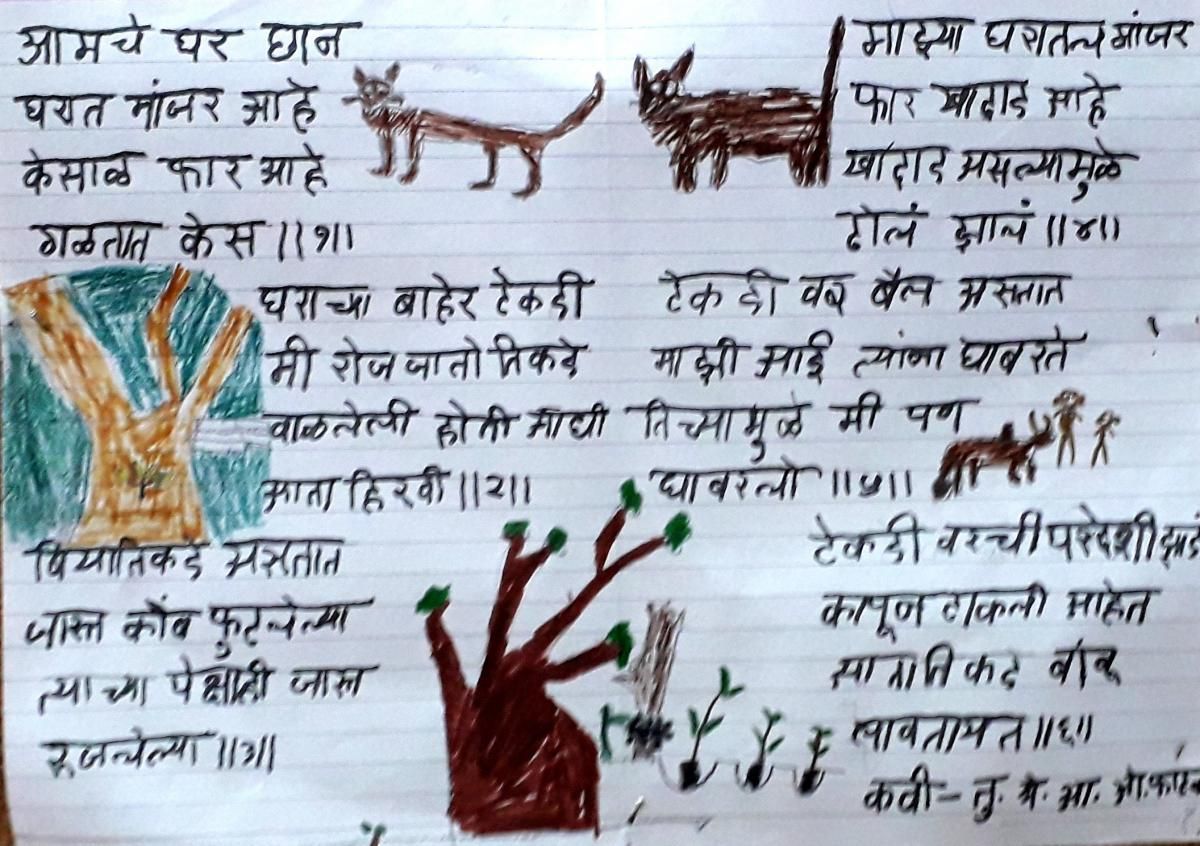 आमचे घर छान
घरात मांजर आहे
केसाळ फार आहे
गळतात केस ||१||
घराच्या बाहेर टेकडी
मी रोज जातो तिकडे
वाळलेली होती आधी
आता हिरवी ||२||
बियातिकडे असतात
जास्त कोंब फुटलेल्या
त्याच्या पेक्षाही जास्त
रुजलेल्या ||३||
माझ्या घरातलं मांजर
फार खादाड आहे
खादाड असल्यामुळे
ढोलं झालं ||४||
टेकडी वर बैल असतात
माझी आई त्यांना घाबरते
तिच्यामुळे मी पण
घाबरलो ||५||
टेकडी वरची परदेशी झाडं
कापून टाकली आहेत
आता तिकडे बांबू
लावतायत ||६||
कवी - तु. श्रे. आ. ओ.